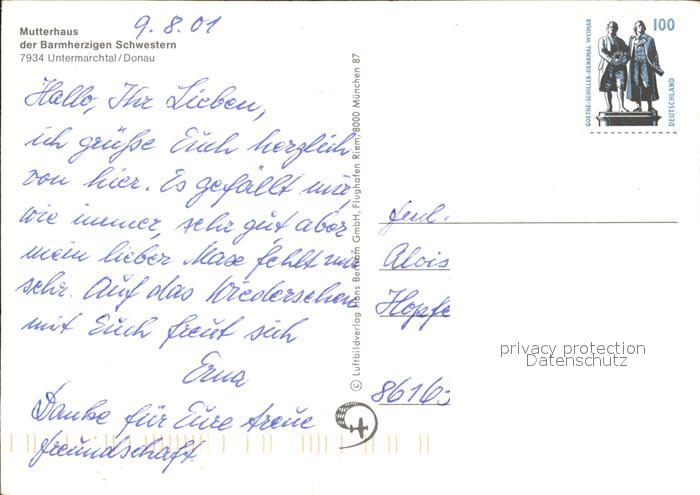 Mutterhaus
der Barmherzigen Schwestern
7934 Untermarchtal/Donau
9.8.01
Hallo, Ihr Lieben,
ich grüße Euch herzlich
von hier. Es gefällt mir,
wie immer, sehr gut aber
mein lieber Max fehlt mir
sehr. Auf das Wiedersehen
mit Euch freut sich
Erna
Danke für Eure treue
Freundschaft.
© Luftbildverlag Hans Bertram GmbH, Flughafen Riem, 8000 München 87
GOETHE-SCHILLER-DENKMAL WEIMAR
100
DEUTSCHLAND
Alois
Hopfe
86163
privacy protection
Datenschutz